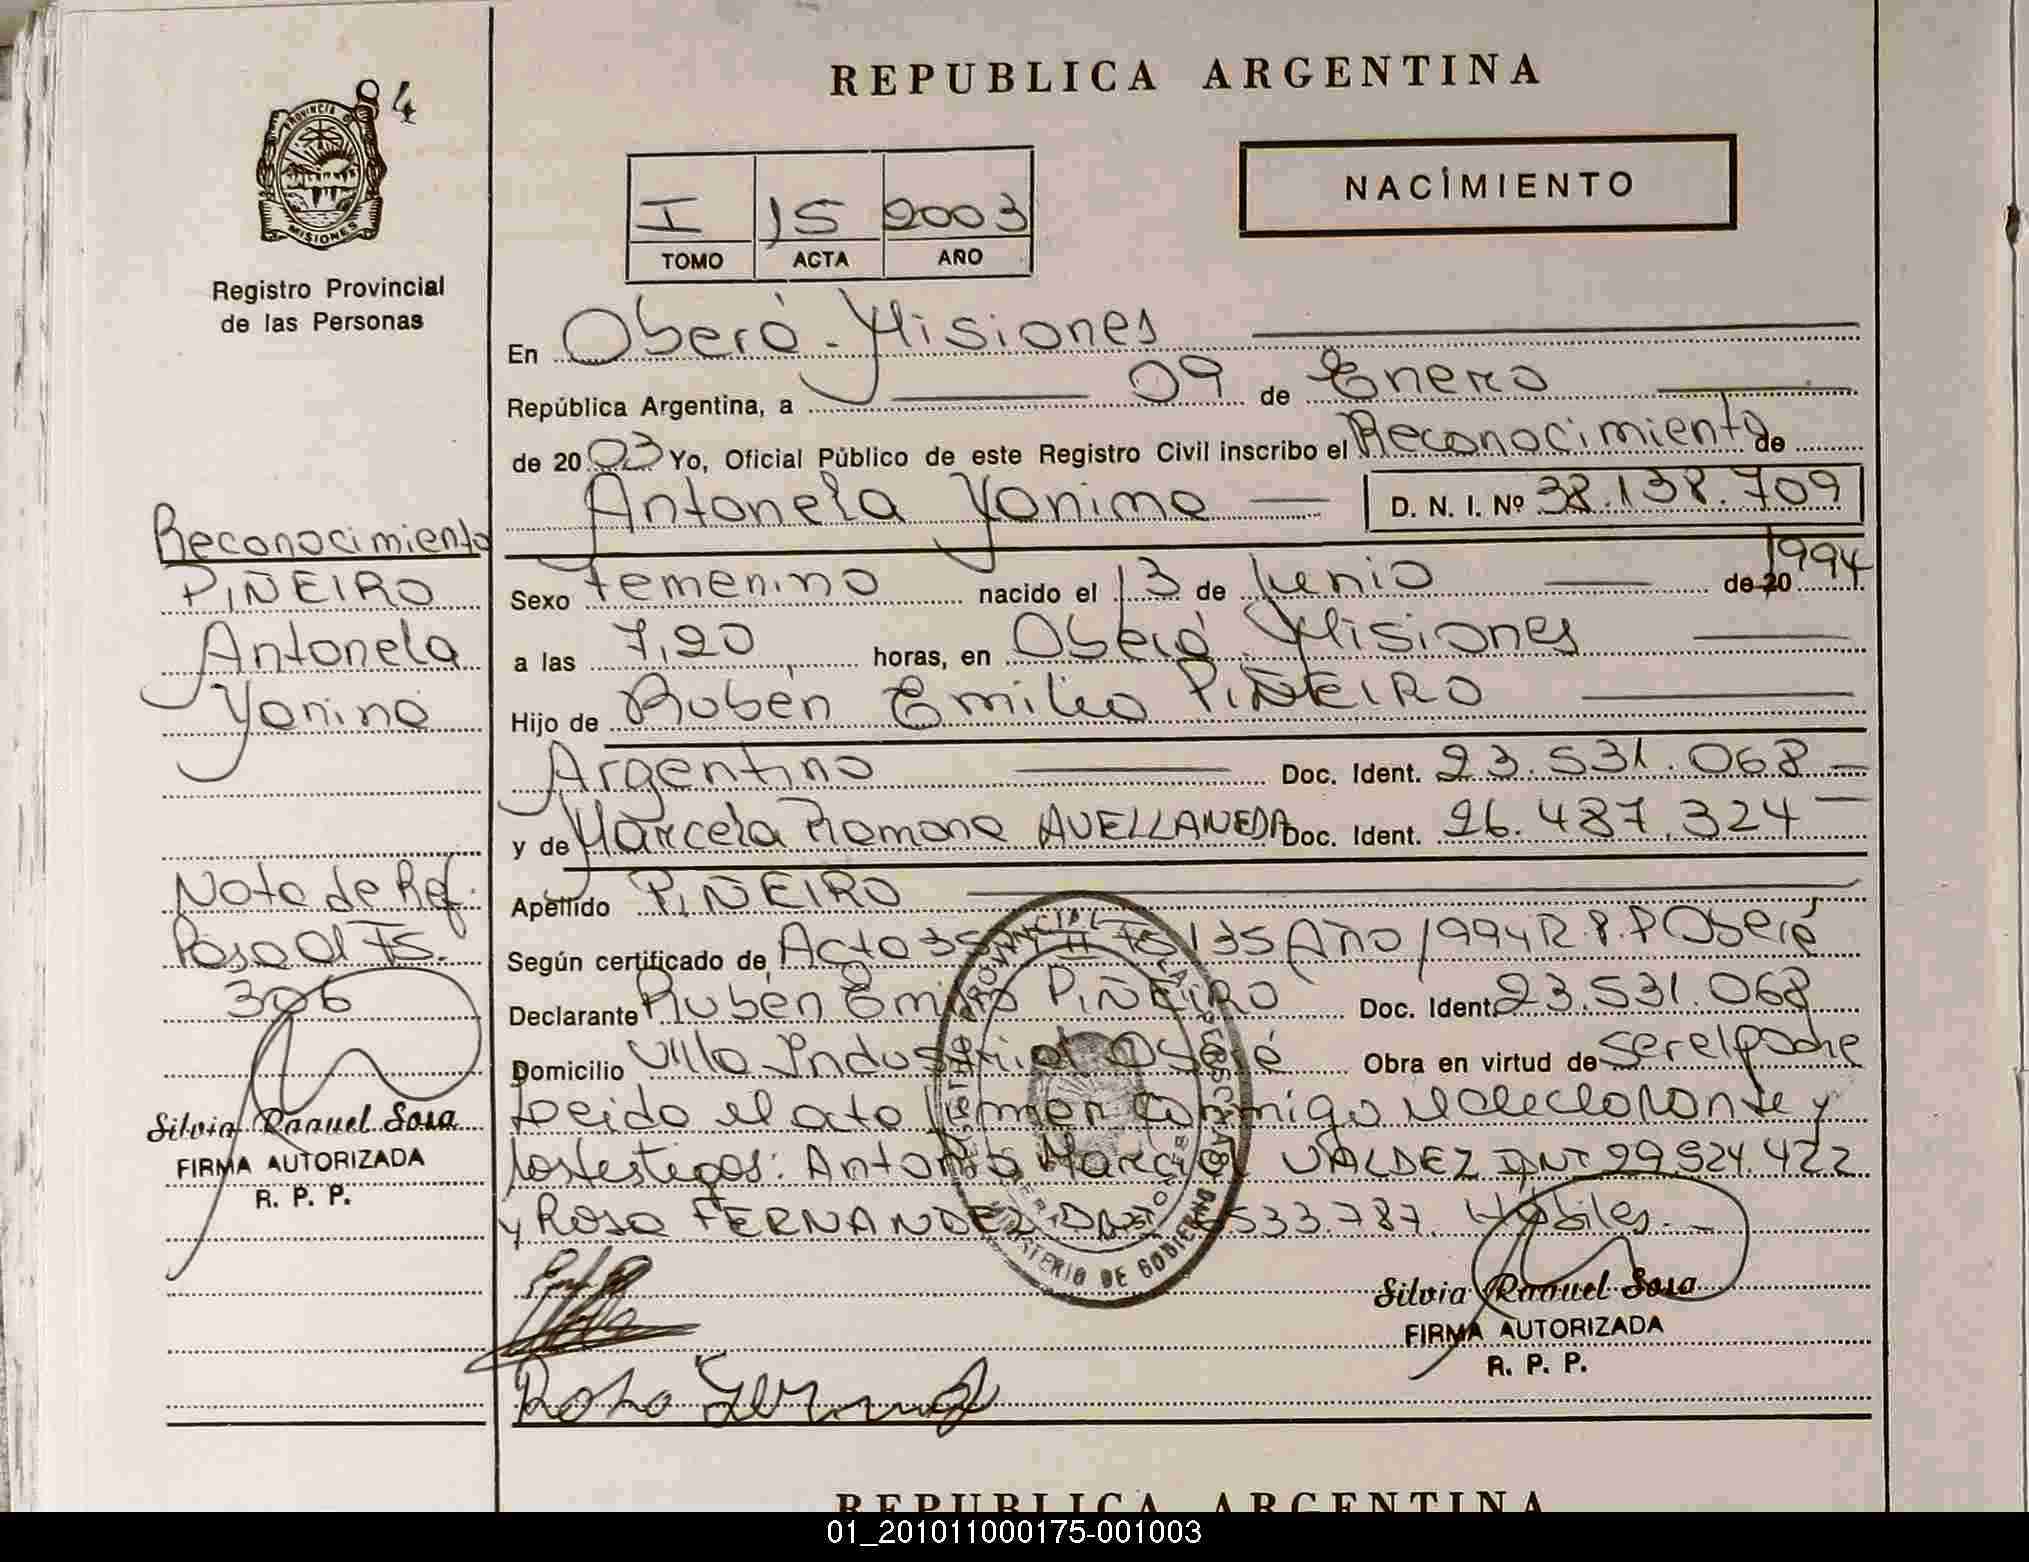 REPUBLICA ARGENTINA
84
PROVINCIA DE
MISIONES
Registro Provincial
de las Personas
I 15 2003
TOMO ACTA AÑO
NACIMIENTO
En Oberá - Misiones
República Argentina, a 09 de Enero
de 2003 Yo, Oficial Público de este Registro Civil inscribo el Reconocimiento de
Antonela Yanina D. N. I. Nº 38.138.709
Sexo Femenino nacido el 13 de Junio de 20 1994
a las 7,20 horas, en Oberá Misiones
Hijo de Rubén Emilio PIÑEIRO
Argentino Doc. Ident. 23.531.068
y de Marcela Ramona AVELLANEDA Doc. Ident. 26.487.324
Apellido PIÑEIRO
Según certificado de Acta 35 II 135 Año 1994 R.P.P Oberá
Declarante Rubén Emilio PIÑEIRO Doc. Ident. 23.531.068
Domicilio Villa Industrial Oberá Obra en virtud de ser el padre
Leido el acta firman conmigo el declarante y
los testigos: Antonio VALDEZ DNI 29.924.422
y Rosa FERNANDEZ 533.787. Hábiles.
Silvia Raquel Sosa
FIRMA AUTORIZADA
R. P. P.
Reconocimiento
PIÑEIRO
Antonela
Yanina
Nota de Ref.
Pasa al Fs.
306
Silvia Raquel Sosa
FIRMA AUTORIZADA
R. P. P.
MINISTERIO DE GOBIERNO
REPUBLICA ARGENTINA
01_201011000175-001003